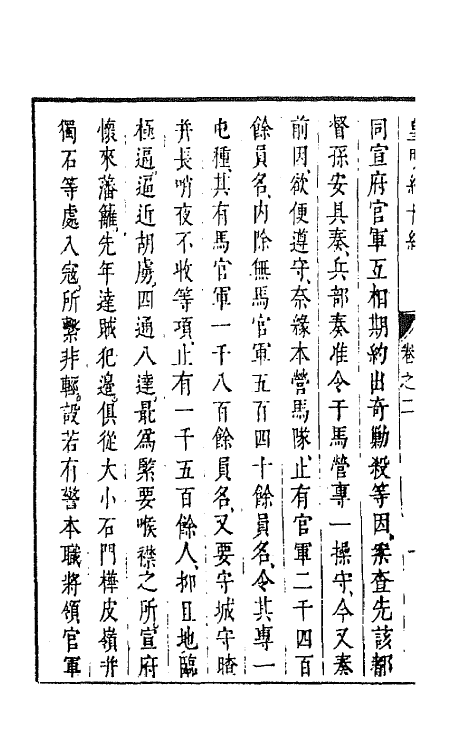 同宣府官軍互相期約出奇勦殺等因案查先該都
督孫安具奏兵部奏准令于馬營專一操守今又奏
前因欲便遵守奈緣本營馬隊止有官軍二千四百
餘員名内除無馬官軍五百四十餘員名令其專一
屯種其有馬官軍一千八百餘員名又要守城守瞭
并長哨夜不收等項止有一千五百餘人抑且地臨
極邊逼近胡虜四通八達最為緊要喉襟之所宣府
懷來藩籬先年達賊犯邊俱從大小石門樺皮嶺并
獨石等處入寇所繫非輕設若有警本職將領官軍
卷之二